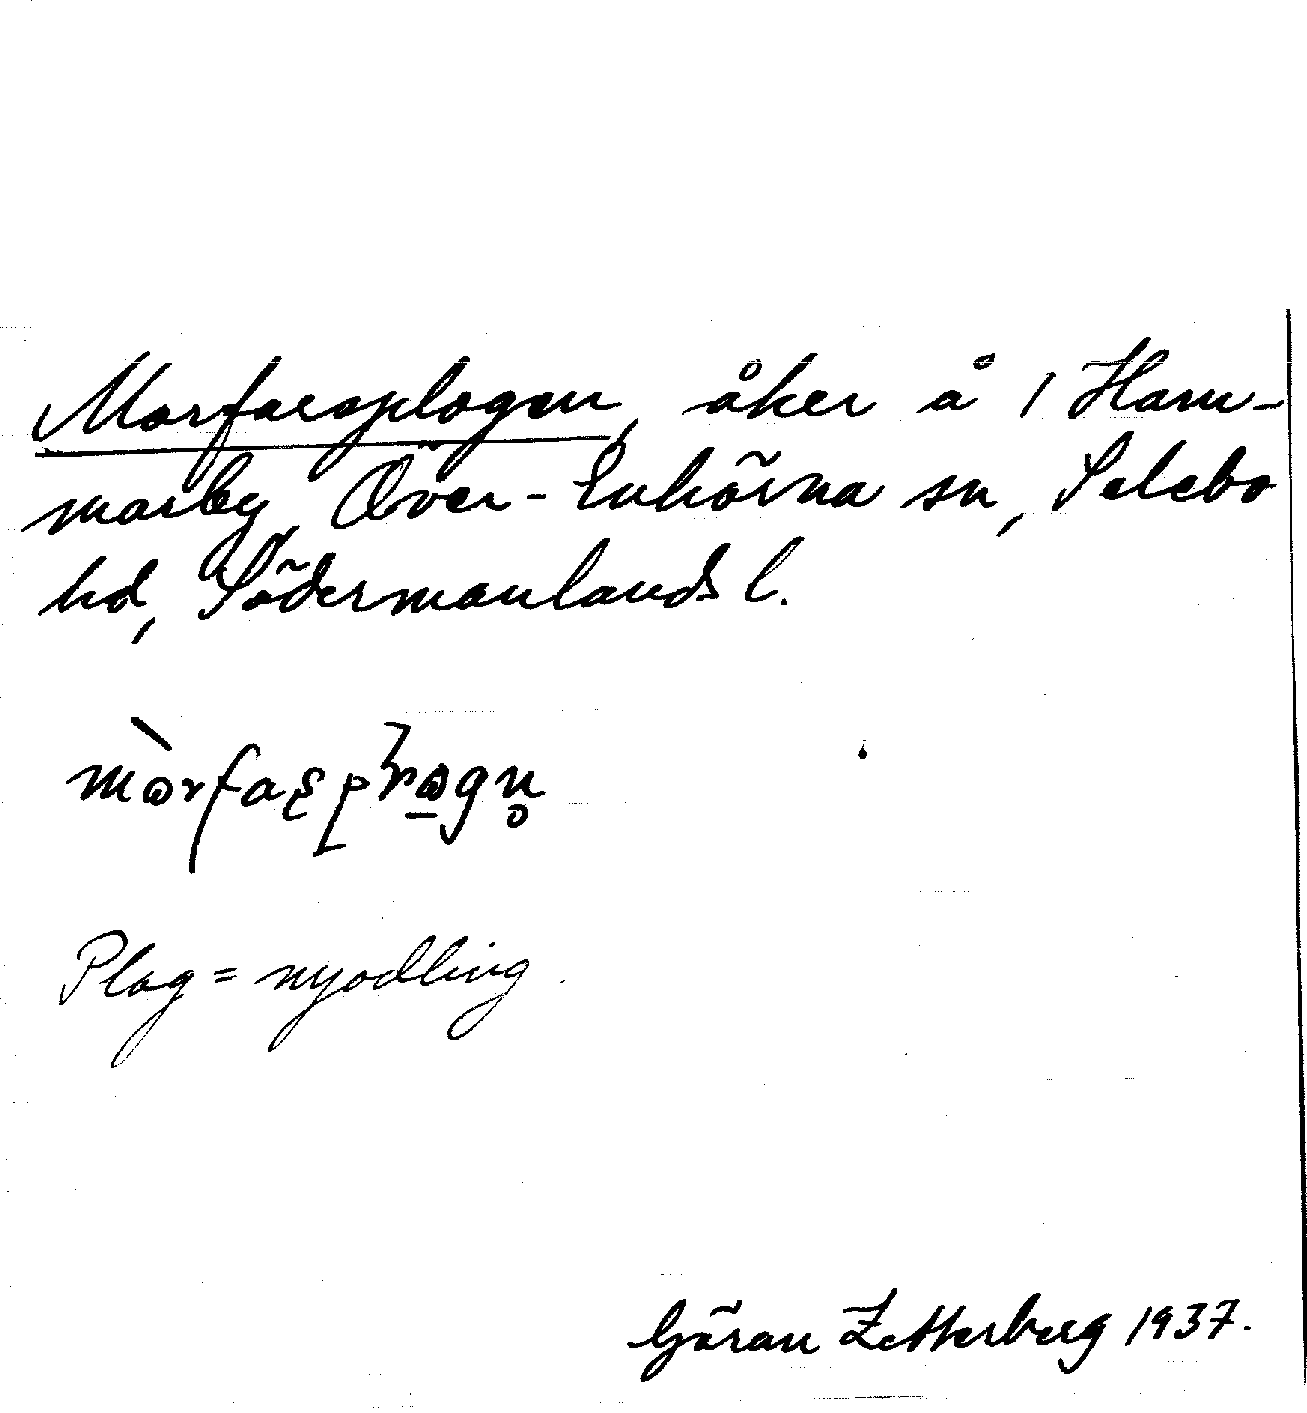 Morfarsplogen, åker å 1 Ham-
marby, Över-Enhörna sn, Selebo
hd, Södermanlands l.
Plog = nyodling.
Göran Zetterberg 1937.